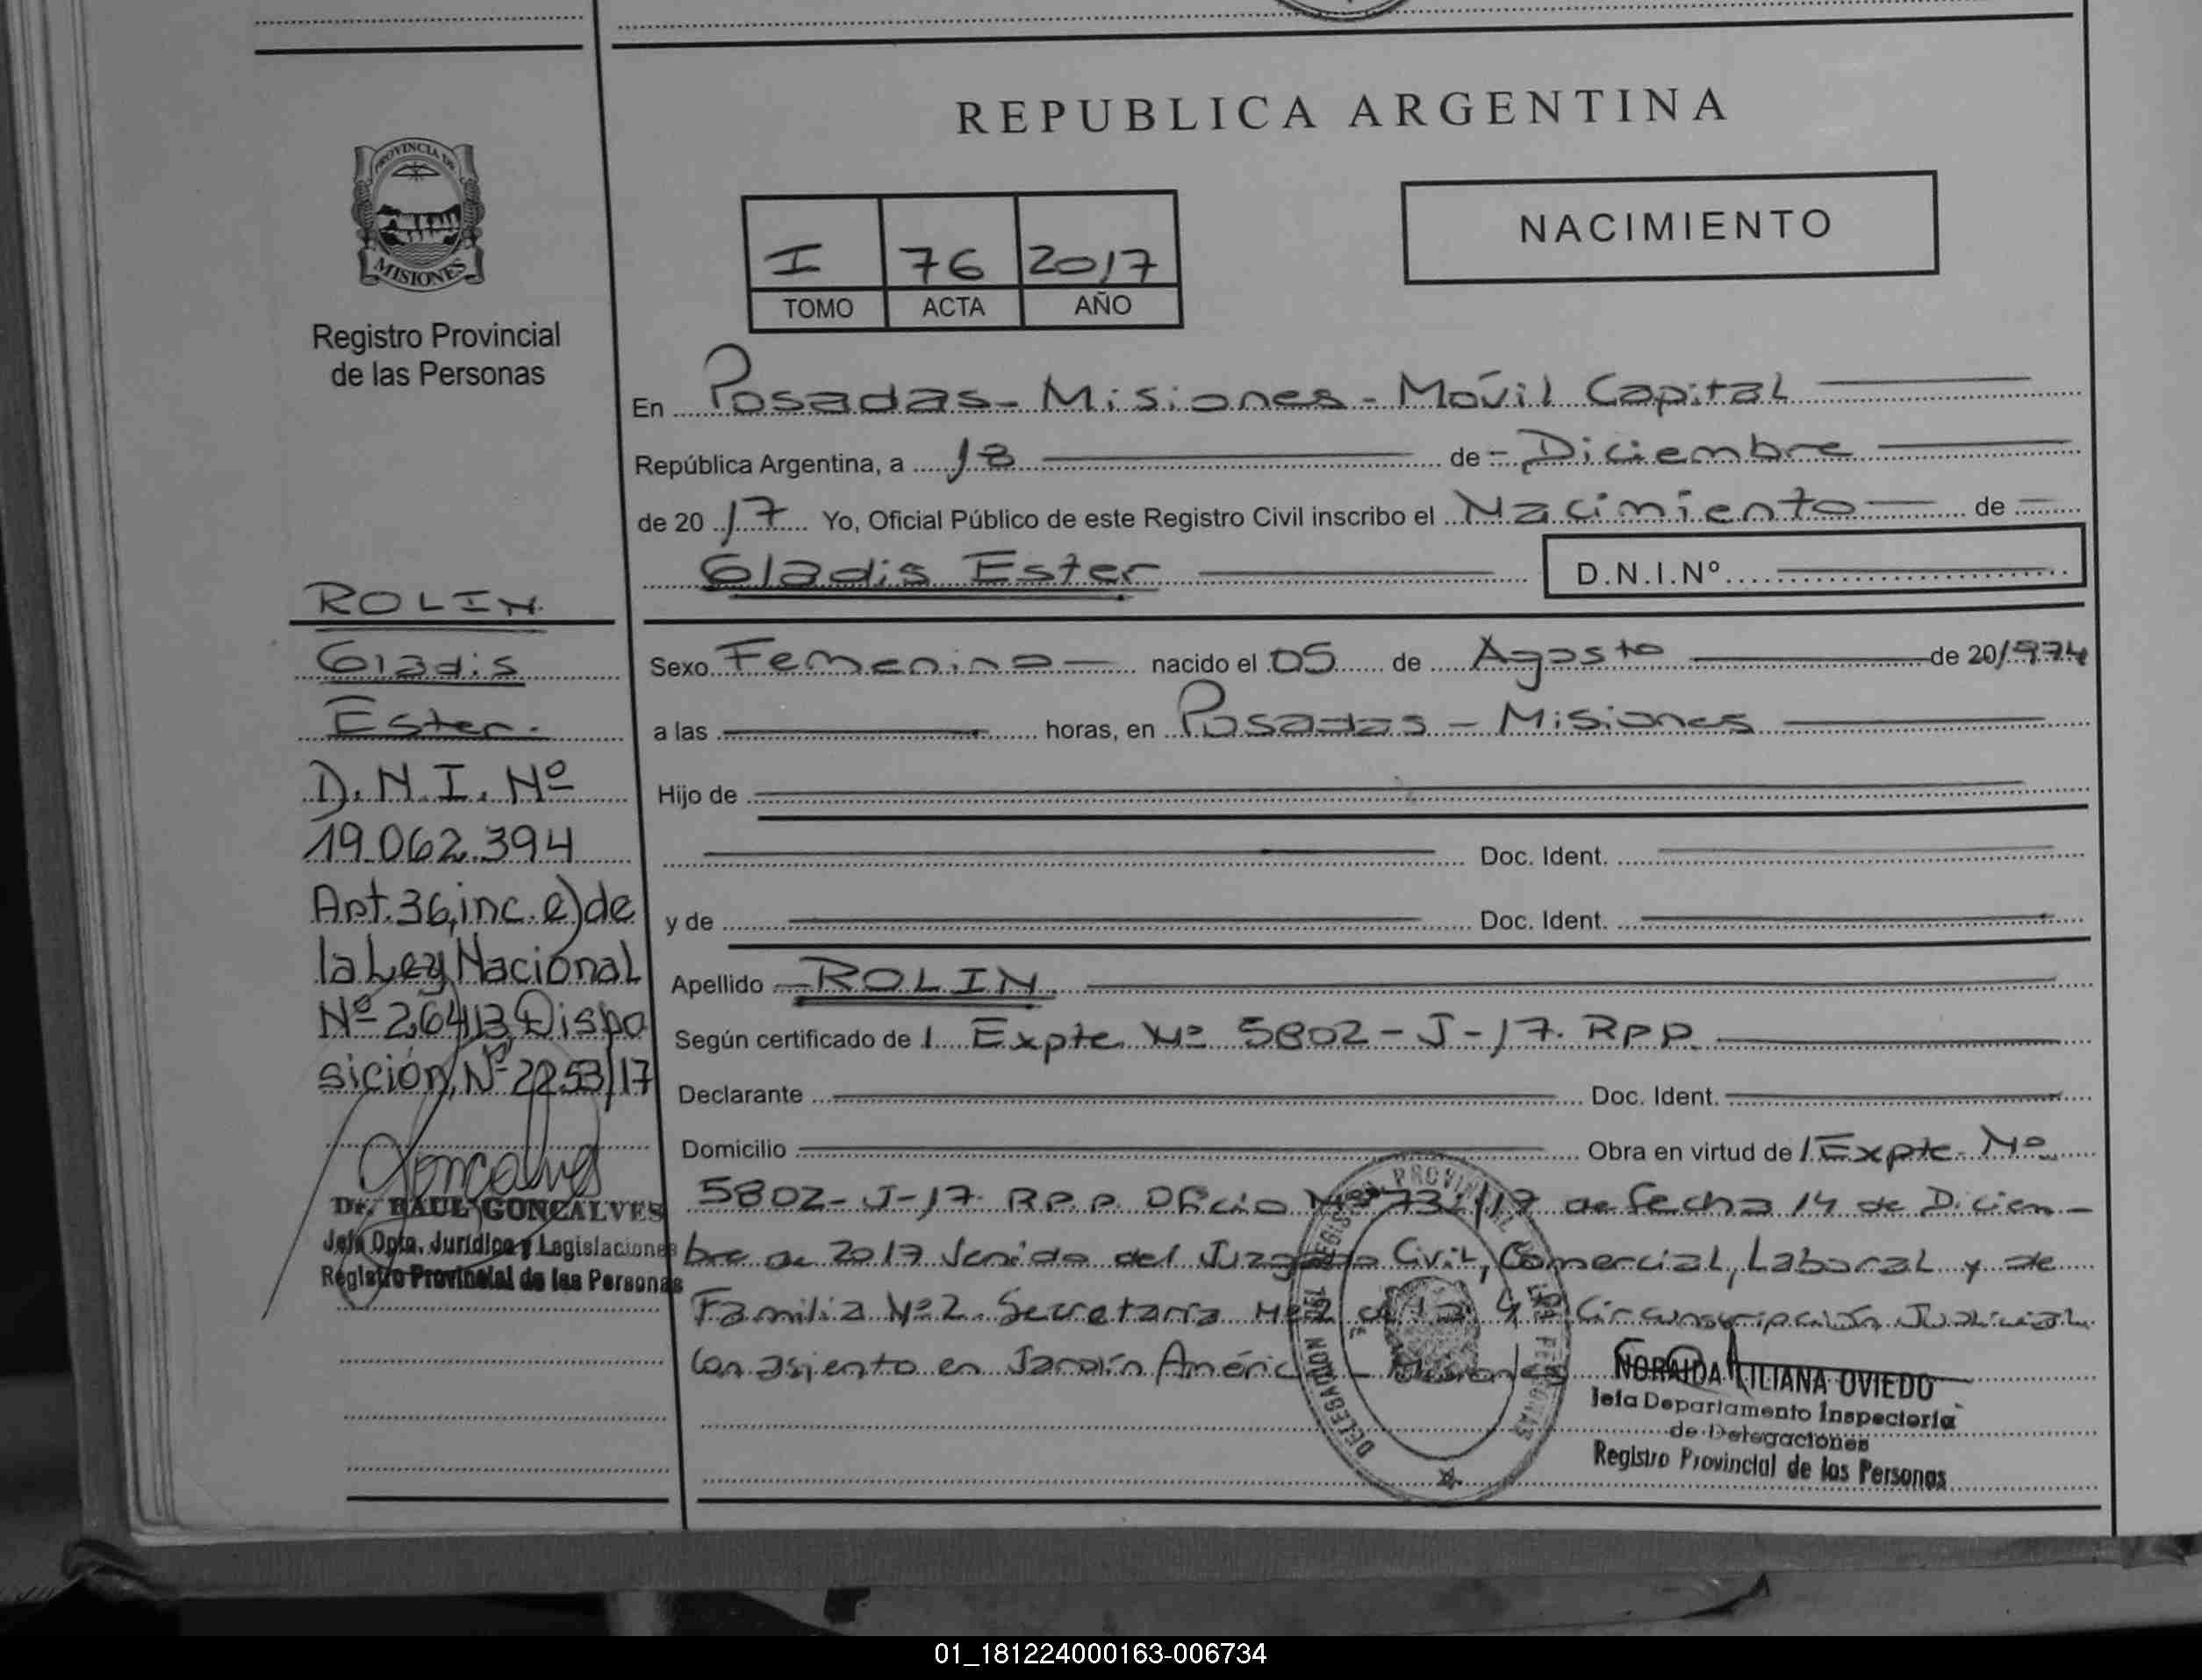 PROVINCIA DE
MISIONES
Registro Provincial
de las Personas
ROLIN
Gladis
Ester.
D.N.I. Nº
19.062.394
Art. 36, inc. e) de
la Ley Nacional
Nº 26413, Dispo
sición, Nº 2253/17
Goncalves
Dr. RAUL GONCALVES
Jefe Dpto. Jurídico y Legislaciones
Registro Provincial de las Personas
REPUBLICA ARGENTINA
I 76 2017
TOMO ACTA AÑO
NACIMIENTO
En Posadas - Misiones - Móvil Capital
República Argentina, a 18 de Diciembre
de 20 17 Yo, Oficial Público de este Registro Civil inscribo el Nacimiento de
Gladis Ester D.N.I.Nº
Sexo Femenino nacido el 05 de Agosto de 20/974
a las horas, en Posadas - Misiones
Hijo de
Doc. Ident.
y de Doc. Ident.
Apellido ROLIN
Según certificado de / Expte Nº 5802 - J - 17. RPP.
Declarante Doc. Ident.
Domicilio Obra en virtud de / Expte. Nº
5802 - J - 17. R.P.P. Oficio /17 de fecha 14 de Diciem -
bre de 2017 venido del Juzgado Civil, Comercial, Laboral y de
Familia Nº 2. Secretaría Nº 2 de la 4 Circunscripción Judicial
Con asiento en Jardín América - Misiones
DELEGACION DEL REGISTRO PROVINCIAL DE LAS PERSONAS
NORAIDA LILIANA OVIEDO
Jefa Departamento Inspectoría
de Delegaciones
Registro Provincial de las Personas
01_181224000163-006734